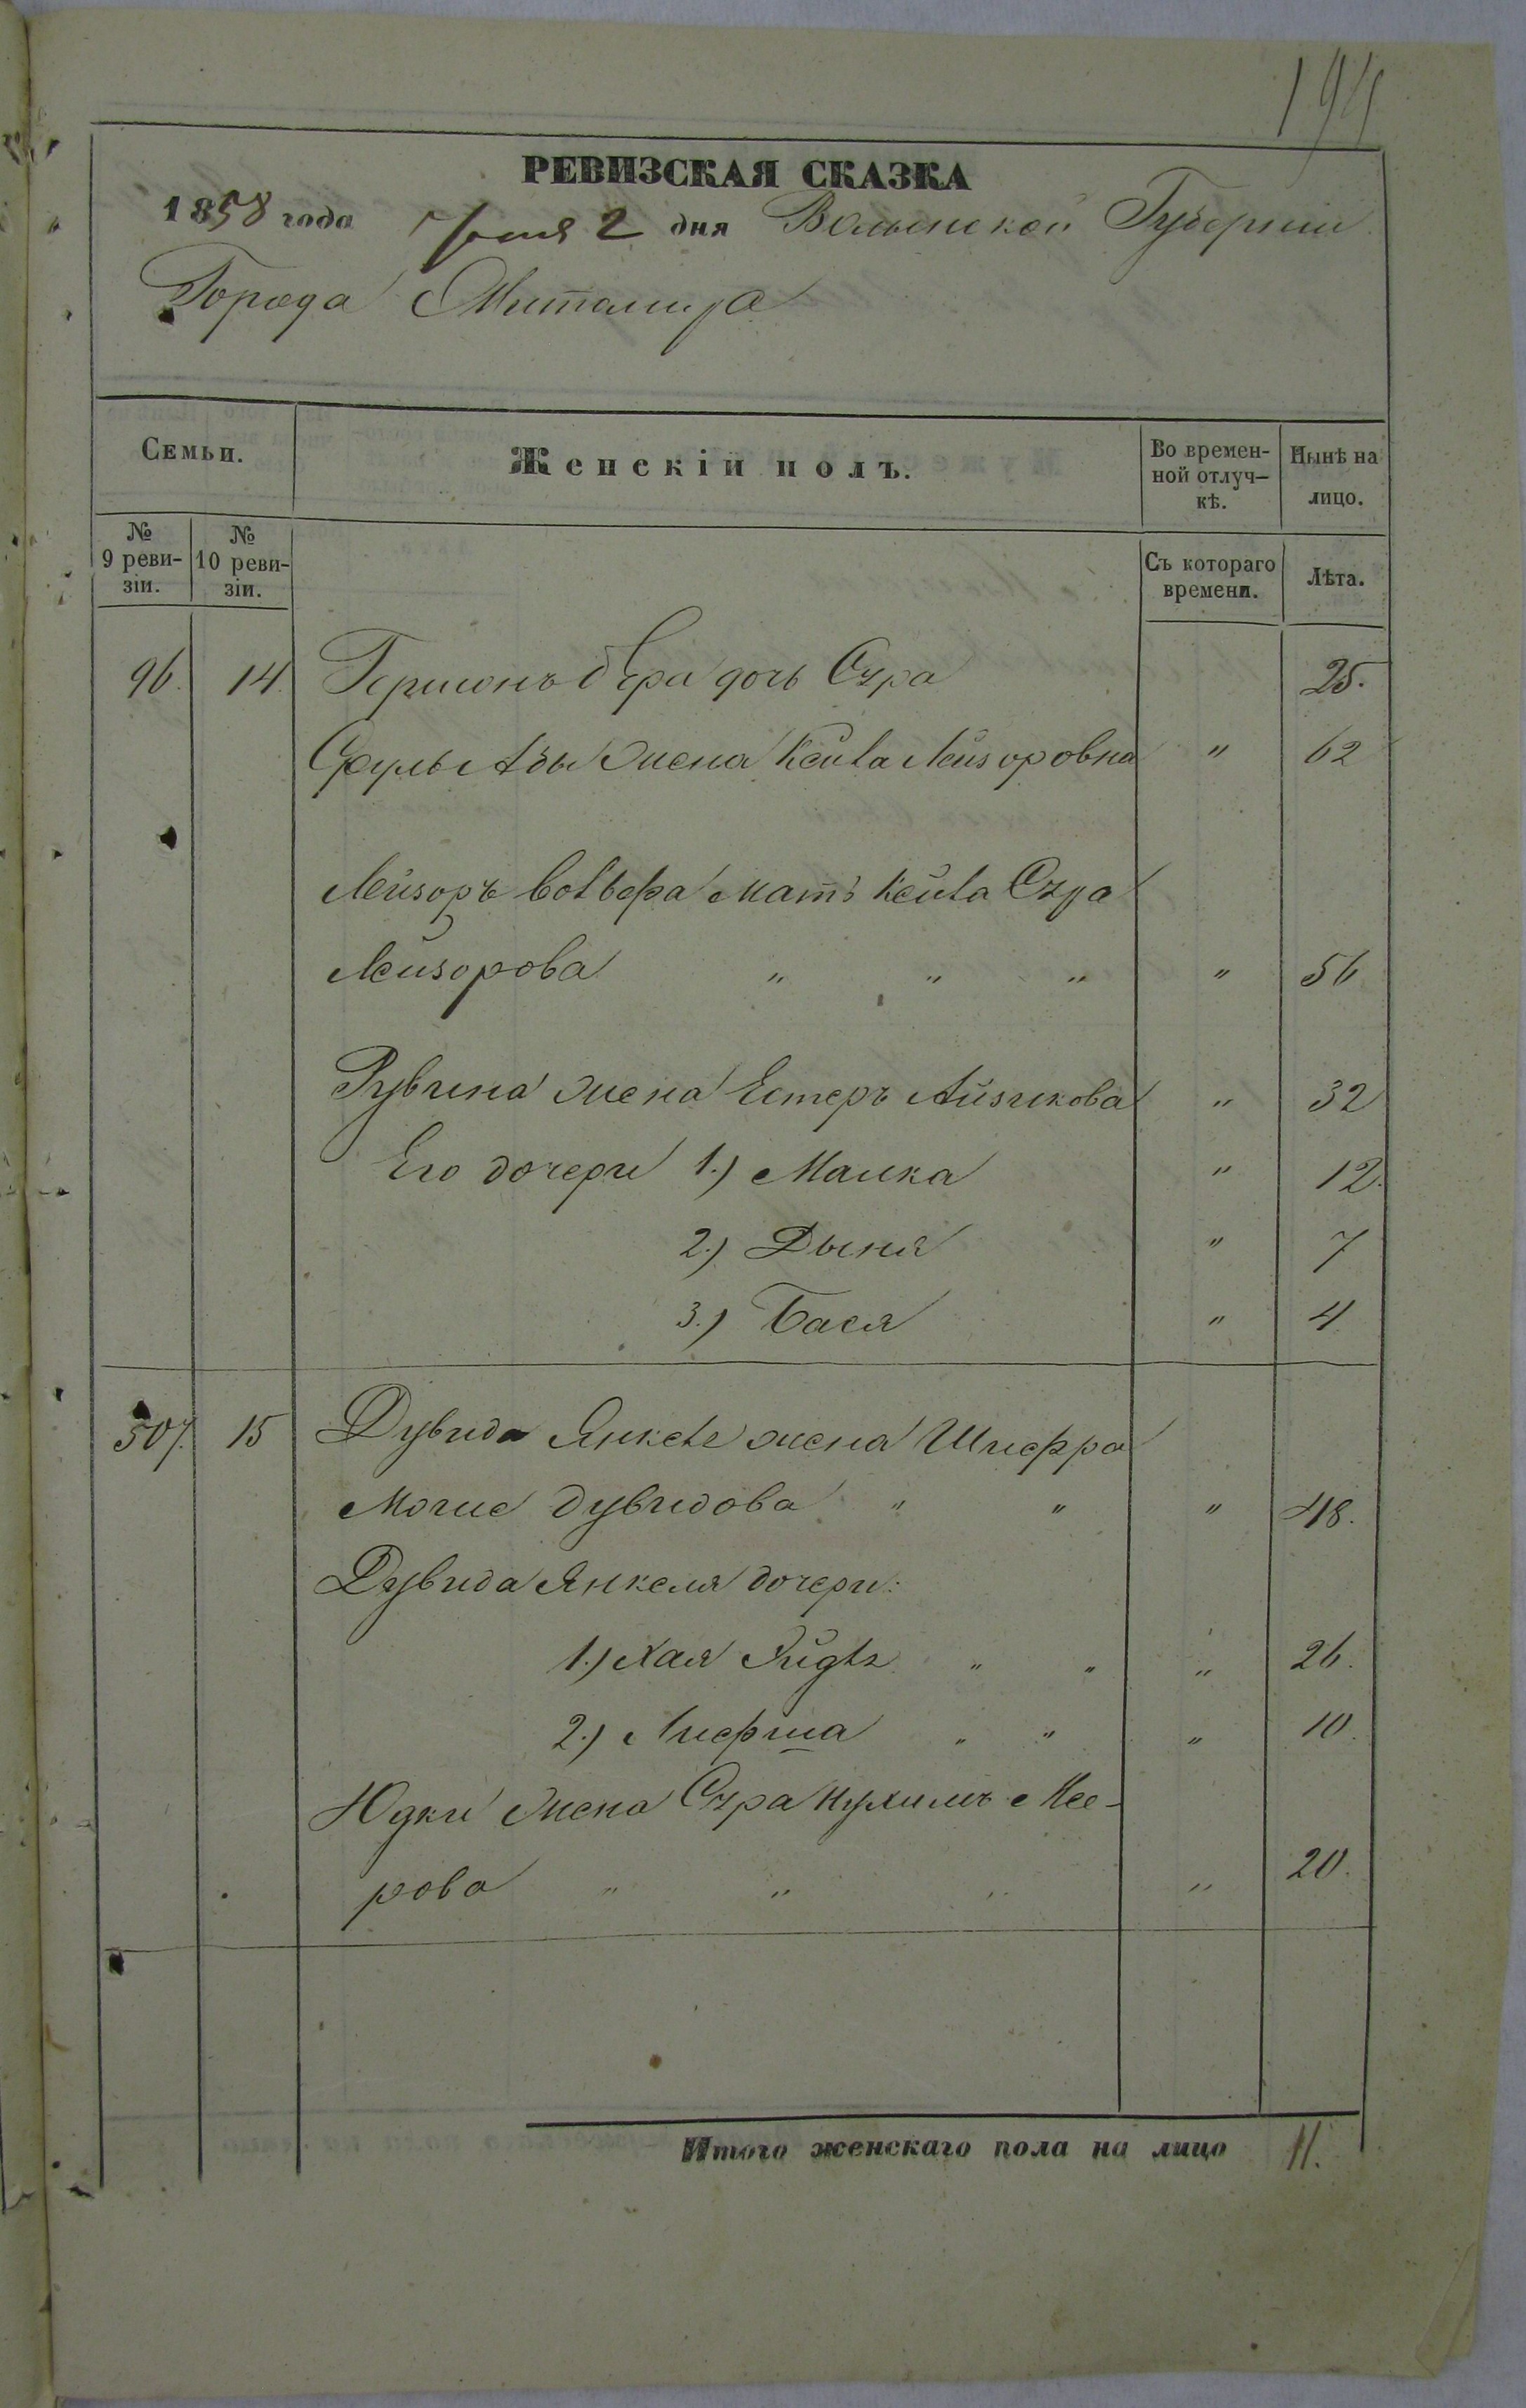 194
РЕВИЗСКАЯ СКАЗКА
1858 года Июня 2 дня Волынской Губернии
Города Житомира
Семьи. Женскій полъ. Во времен- Нынѣ на
ной отлуч- лицо.
кѣ.
№ № 
9 реви- 10 реви- Съ котораго Лѣта.
зіи. зіи. времени.
96. 14. Гершонъ Бера дочь Сура 25.
жена Кейла Лейзоровна " 62
Лейзоръ Вольфа мать Кейла Сура
Лейзорова " " " " 56
Рувина жена Естеръ Айзикова " 32
Его дочери 1.) Малка " 12.
2.) Дыня " 7
3.) Бася " 4
507. 15 Дувида Янкеля жена Шифра
Дувидова " " " 48.
Дувида Янкеля дочери:
1.) Хая " " " 26.
2.) " " " 10.
Юдки жена Сура Нухимъ Мее-
рова " " " " 20.
Итого женскаго пола на лицо 11.